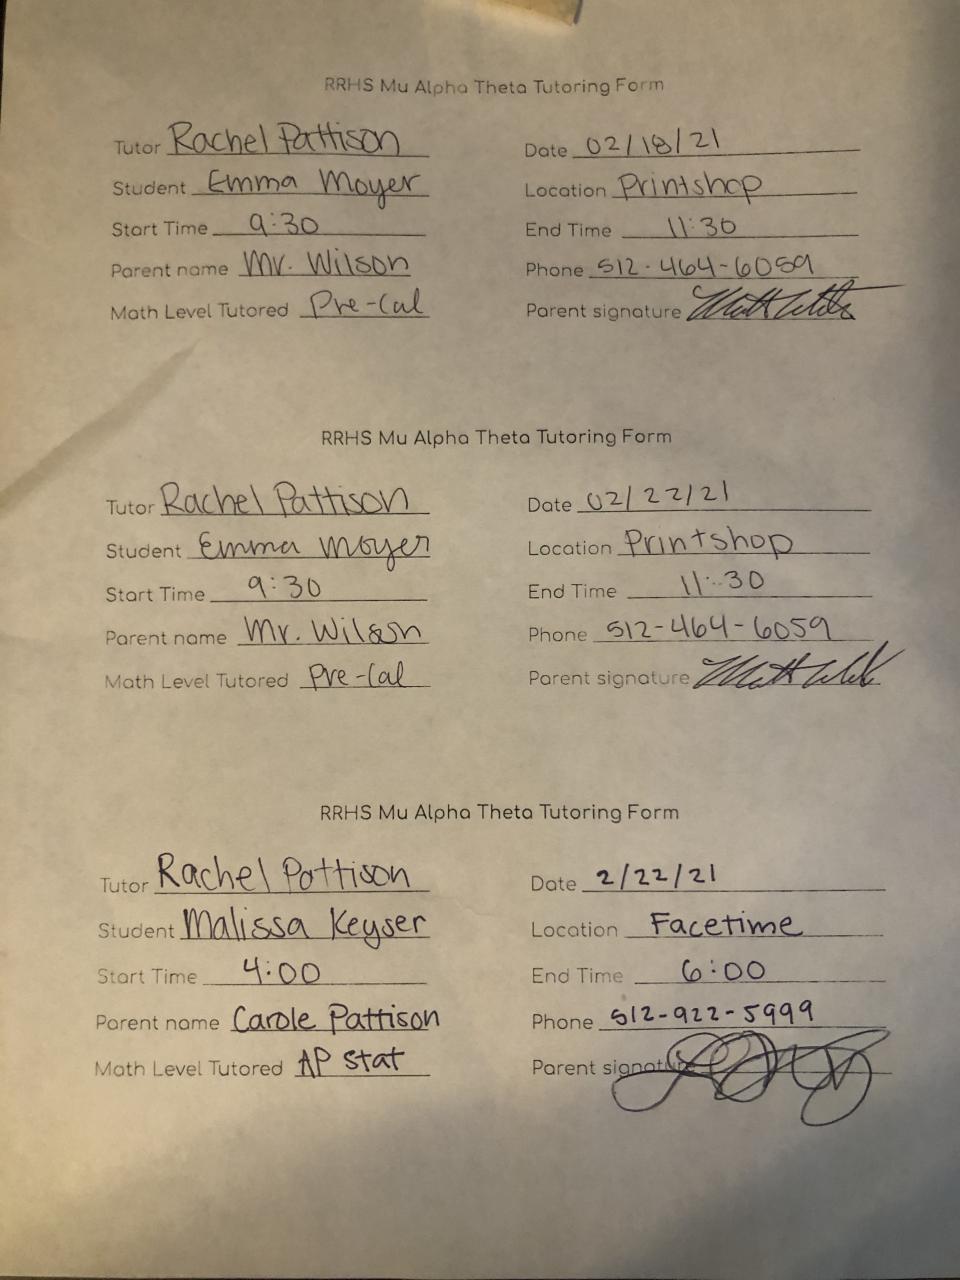 RRHS Mu Alpha Theta Tutoring Form
Tutor Rachel Pattison Date 02/18/21
Student Emma Moyer Location Printshop
Start Time 9:30 End Time 11:30
Parent name Mr. Wilson Phone 512-464-6059
Math Level Tutored Pre-Cal Parent signature
RRHS Mu Alpha Theta Tutoring Form
Tutor Rachel Pattison Date 02/22/21
Student Emma Moyer Location Printshop
Start Time 9:30 End Time 11:30
Parent name Mr. Wilson Phone 512-464-6059
Math Level Tutored Pre-Cal Parent signature
RRHS Mu Alpha Theta Tutoring Form
Tutor Rachel Pattison Date 2/22/21
Student Malissa Keyser Location Facetime
Start Time 4:00 End Time 6:00
Parent name Carole Pattison Phone 512-922-5999
Math Level Tutored AP Stat Parent signature